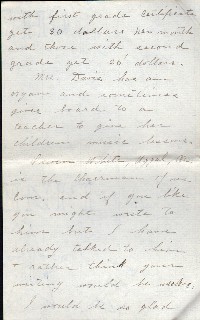 with first grade certificate
get 30 dollars per month
and those with second
grade get 20 dollars.
Mr. Davis has an
organ and sometimes
gives board to a
teacher to give his
children music lessons.
is the chairman of our
and if you like
you might write to
him but I have
already talked to him
+ rather think your
writing would be useless.
I would be so glad